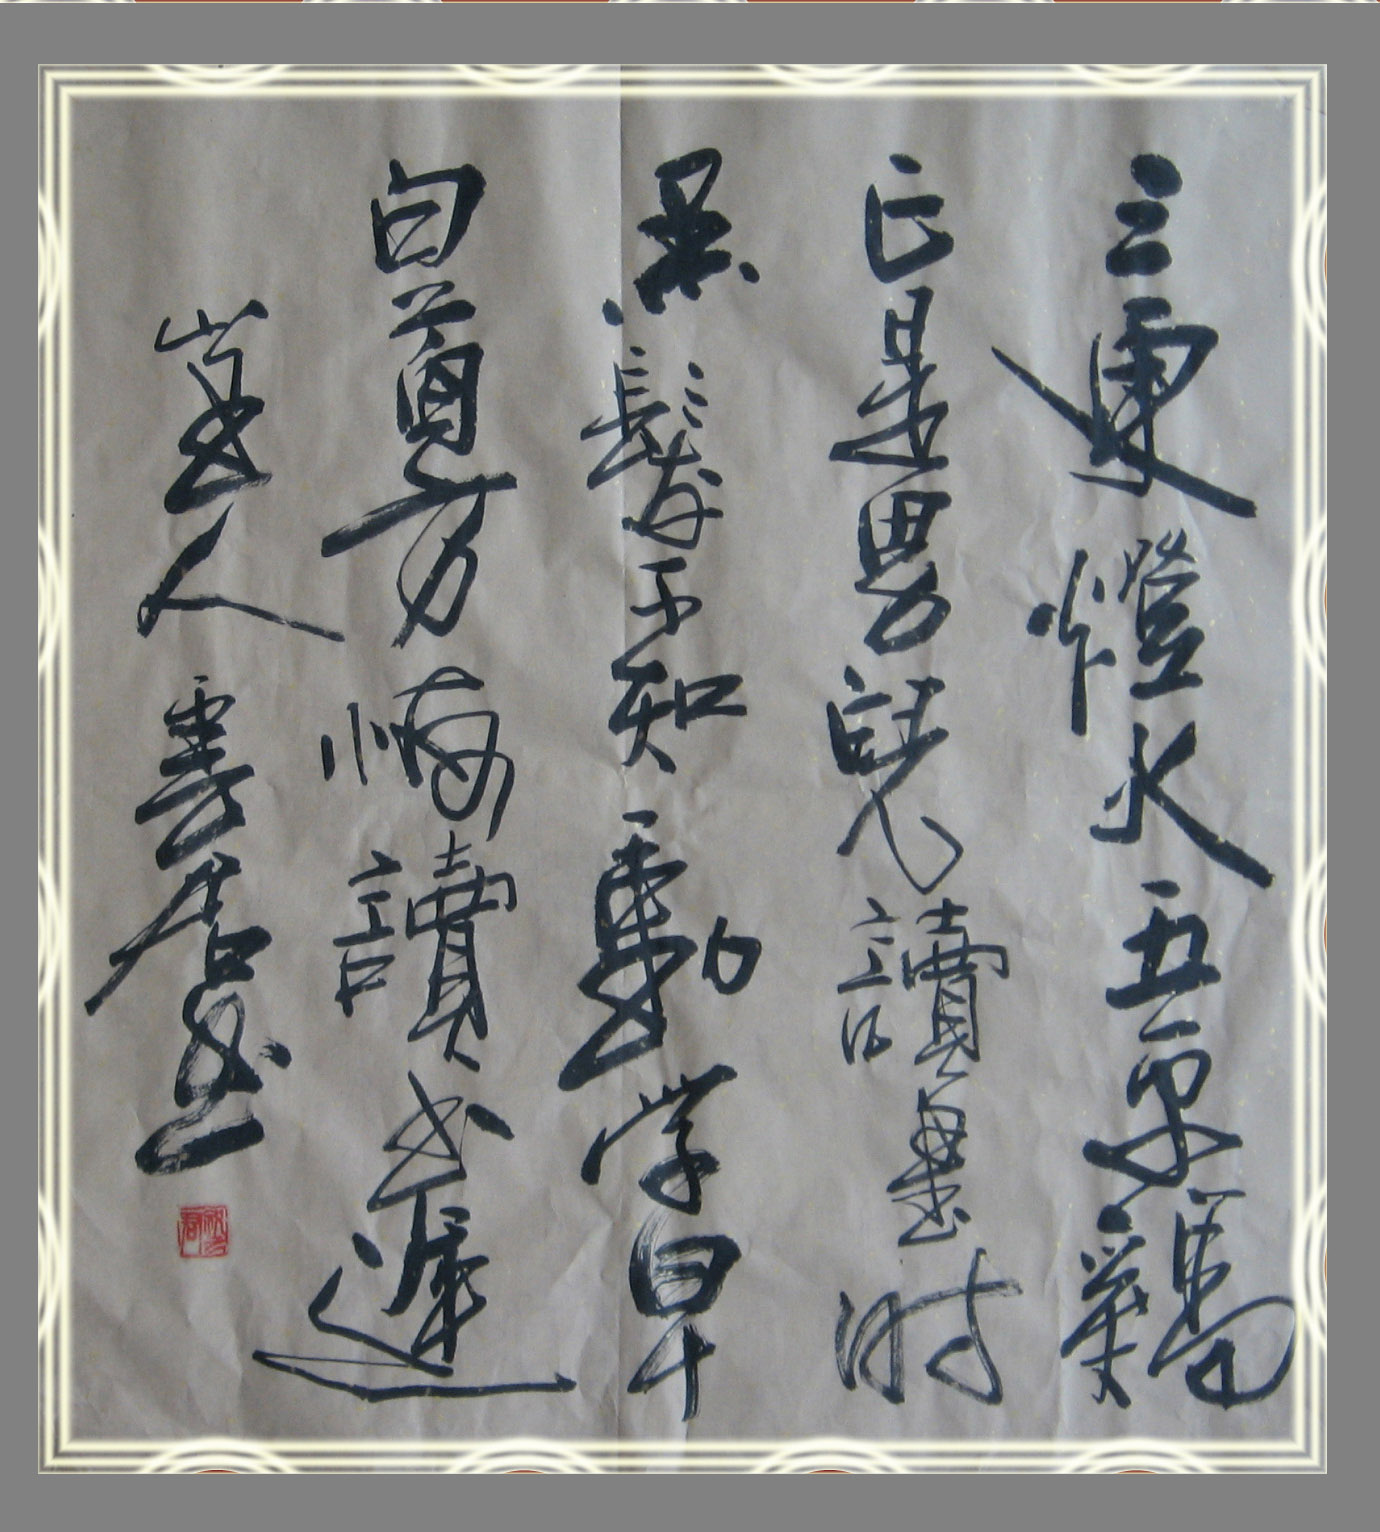 三更燈火五更雞
正是男兒讀書時
黑髮不知勤學早
白首方悔讀書遲
人雲君書